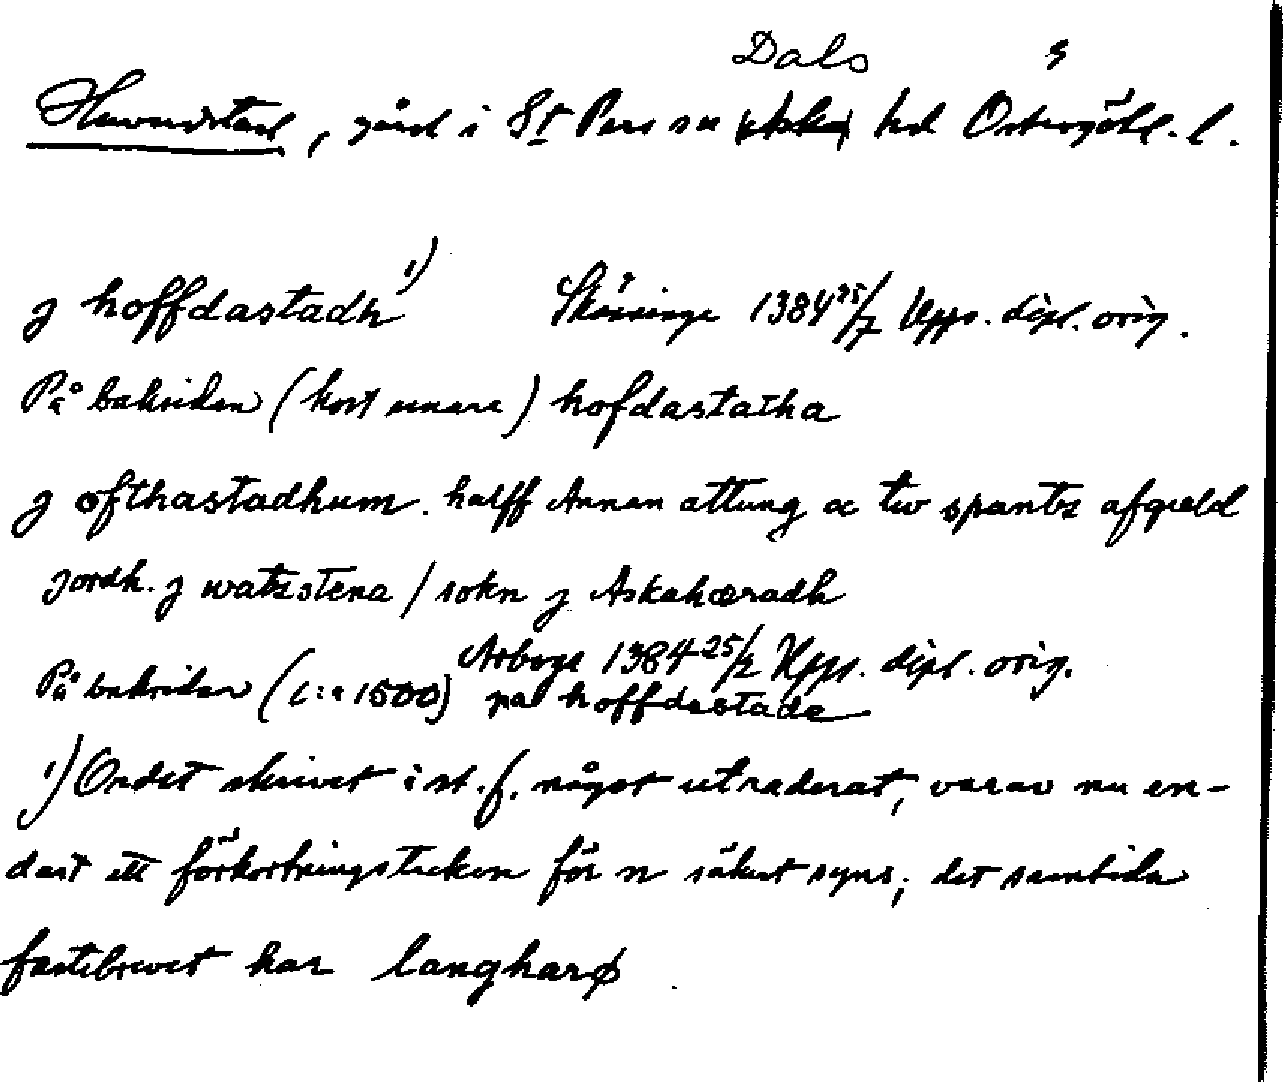 Dals s
Huvudstad, gård i St Pers sn hd Östergötl. l.
j hoffdastadh 1) Skänninge 1384 25/7 Upps. dipl. orig.
På baksidan (kort senare) hofdastatha
j ofthastadhum. halff Annan attung oc tw spantz afgæld
jordh. j watzstena / sokn j Askahæradh
Arboga 1384 25/2 Upps. dipl. orig.
På baksidan (c:a 1500) pa hoffdastada
1) Ordet skrivet i st. f. något utraderat, varav nu en-
dast ett förkortningstecken för n säkert syns; det samtida
fastebrevet har langharø